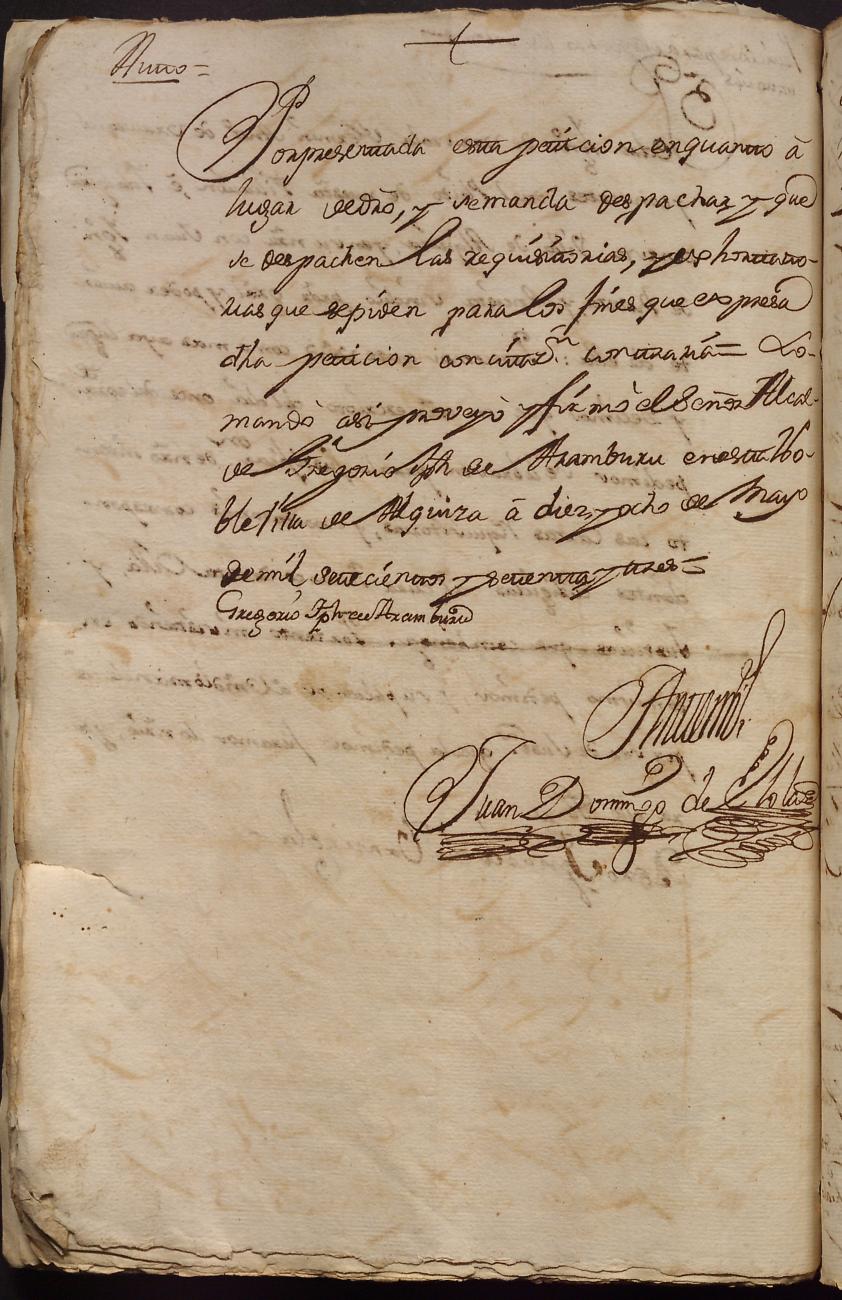 Autto =
Por presenttada estta petticion en quantto â
lugar de dro, y se manda despachar y que
se despachen las requisittorias, y exhortto-
rias que se piden para los fines que expresa
dha petticion con cittazn. conttraria = Lo
mandò asi proveyò y firmò el Señor Alcal-
de Gregorio Jph de Aramburu en estta No-
ble Villa de Alquiza â diez y ocho de Mayo
de mil settecienttos y settentta y ttres =
Gregorio Jph de Aramburu
Antte mi
Juan Domingo de